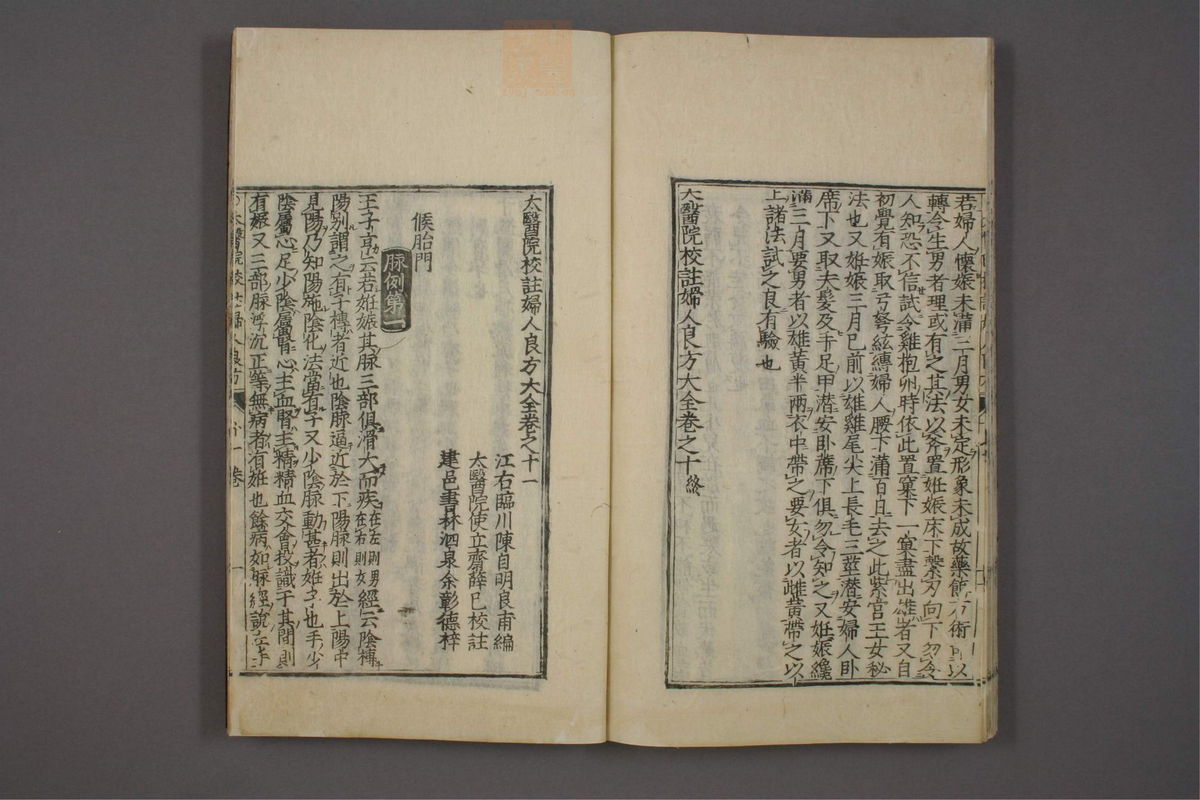 若婦人懷娠未滿三月男女未定形象未成故藥餌方術可以
轉令生男者理或有之其法以斧置姙娠床下繫刃向下勿令
人知恐不信試令雞抱卵時依此置窠下一窠盡出雄者又自
初覺有娠取弓弩絃縛婦人腰下滿百日去之此紫宮玉女秘
法也又姙娠三月已前以雄雞尾尖上長毛三莖潜安婦人臥
席下又取夫髮及手足甲潜安臥蓆下俱勿令知之又姙娠纔
滿三月要男者以雄黃半兩衣中帶之要女者以雌黃帶之以
上諸法試之良有驗也
太醫院校註婦人良方大全卷之十終
太醫院校註婦人良方大全卷之十一
江右臨川陳自明良甫編
太醫院使立齋薛已校註
建邑書林泗泉余彰德梓
候胎門
脉例第一
王子亨云若姙娠其脉三部俱滑大而疾在左則男在右則女經云陰摶
陽別謂之有子摶者近也陰脉逼近於下陽脉則出於上陽中
見陽乃知陽施陰化法當有子又少陰脉動甚者姙子也手少
陰屬心足少陰屬腎心主血腎主精精血交會投識于其間則
有娠又三部脉浮沉正等無病者有姙也餘病如脉經說左手
太醫院校註婦人良方 十一卷 一